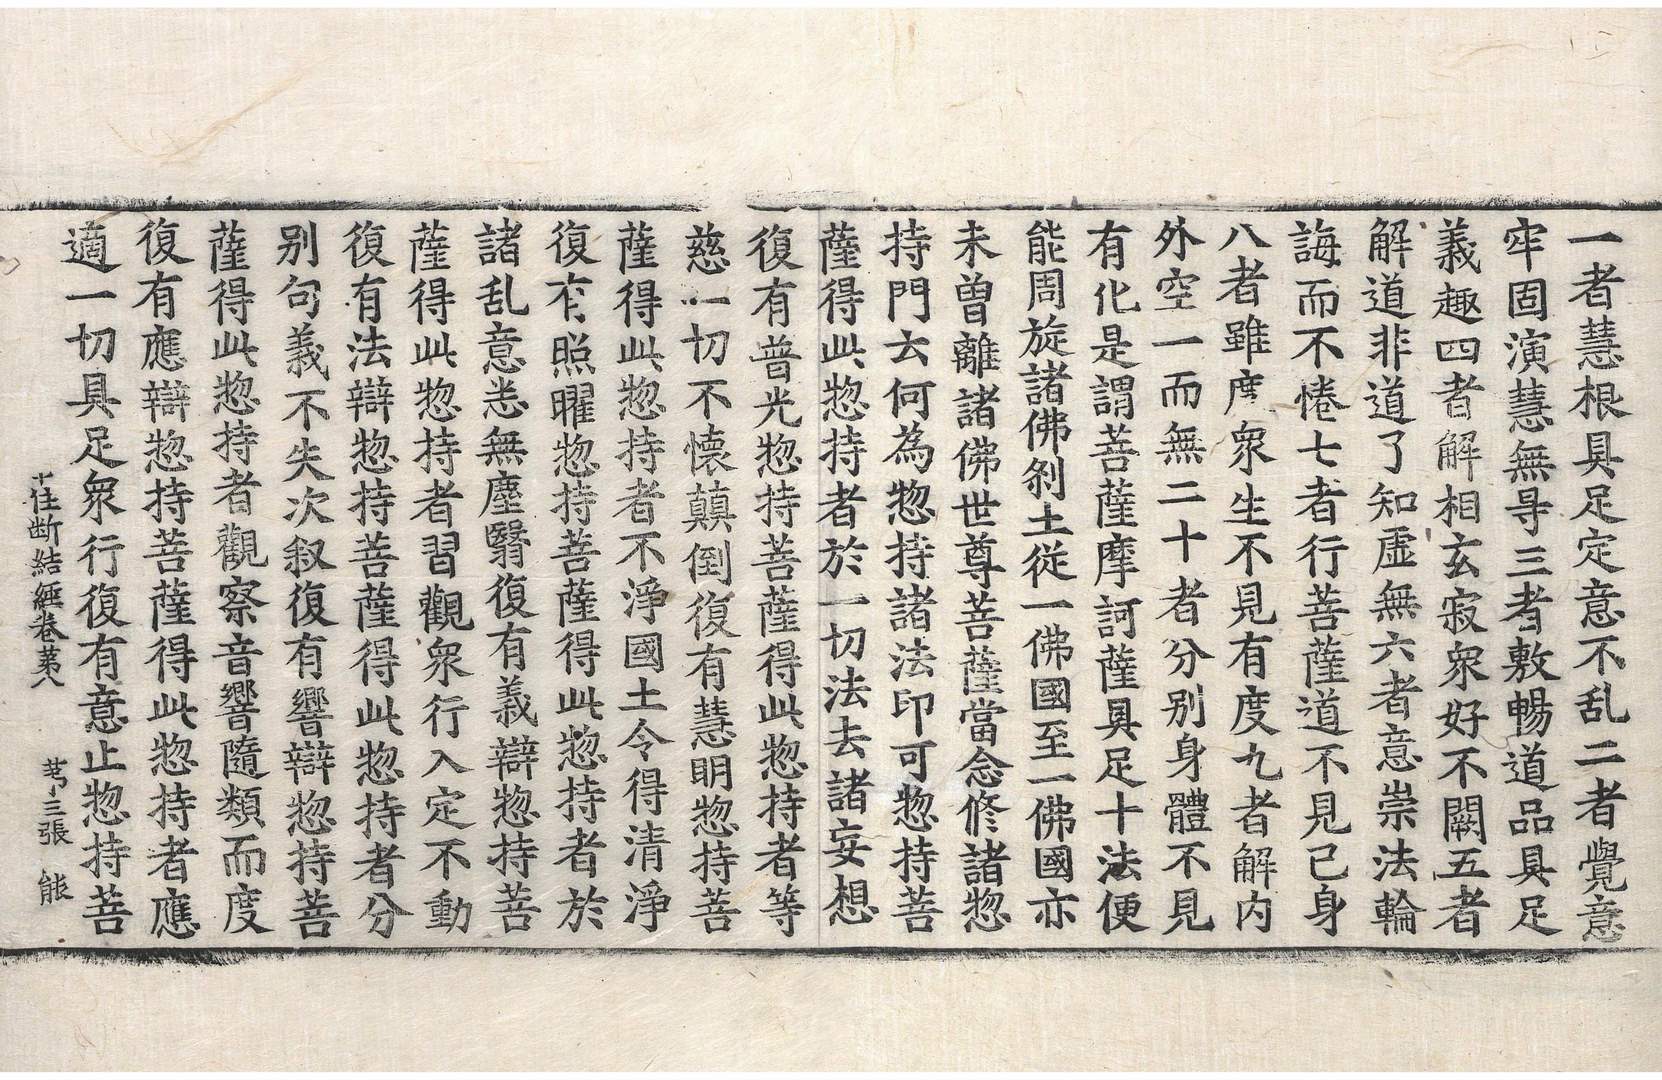 一者慧根具足定意不乱二者覺意
牢固演慧無㝵三者敷暢道品具足
義趣四者解相玄寂衆好不闕五者
解道非道了知虛無六者意崇法輪
誨而不惓七者行菩薩道不見己身
八者雖度衆生不見有度九者解内
外空一而無二十者分别身體不見
有化是謂菩薩摩訶薩具足十法便
能周旋諸佛剎土從一佛國至一佛國亦
未曾離諸佛世尊菩薩當念修諸惣
持門云何為惣持諸法印可惣持菩
薩得此惣持者於一切法去諸妄想
復有普光惣持菩薩得此惣持者等
慈一切不懷顛倒復有慧明惣持菩
薩得此惣持者不淨國土令得清淨
復有照曜惣持菩薩得此惣持者於
諸乱意悉無塵翳復有義辯惣持菩
薩得此惣持者習觀衆行入定不動
復有法辯惣持菩薩得此惣持者分
别句義不失次叙復有響辯惣持菩
薩得此惣持者觀察音響隨類而度
復有應辯惣持菩薩得此惣持者應
適一切具足衆行復有意止惣持菩
十住断結經卷苐八 苐十三張 能